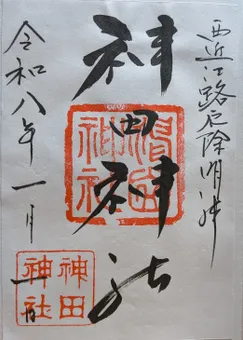 西近江路厄除明神
神田神社
神田
神社
令和八年一月一日
神田
神社